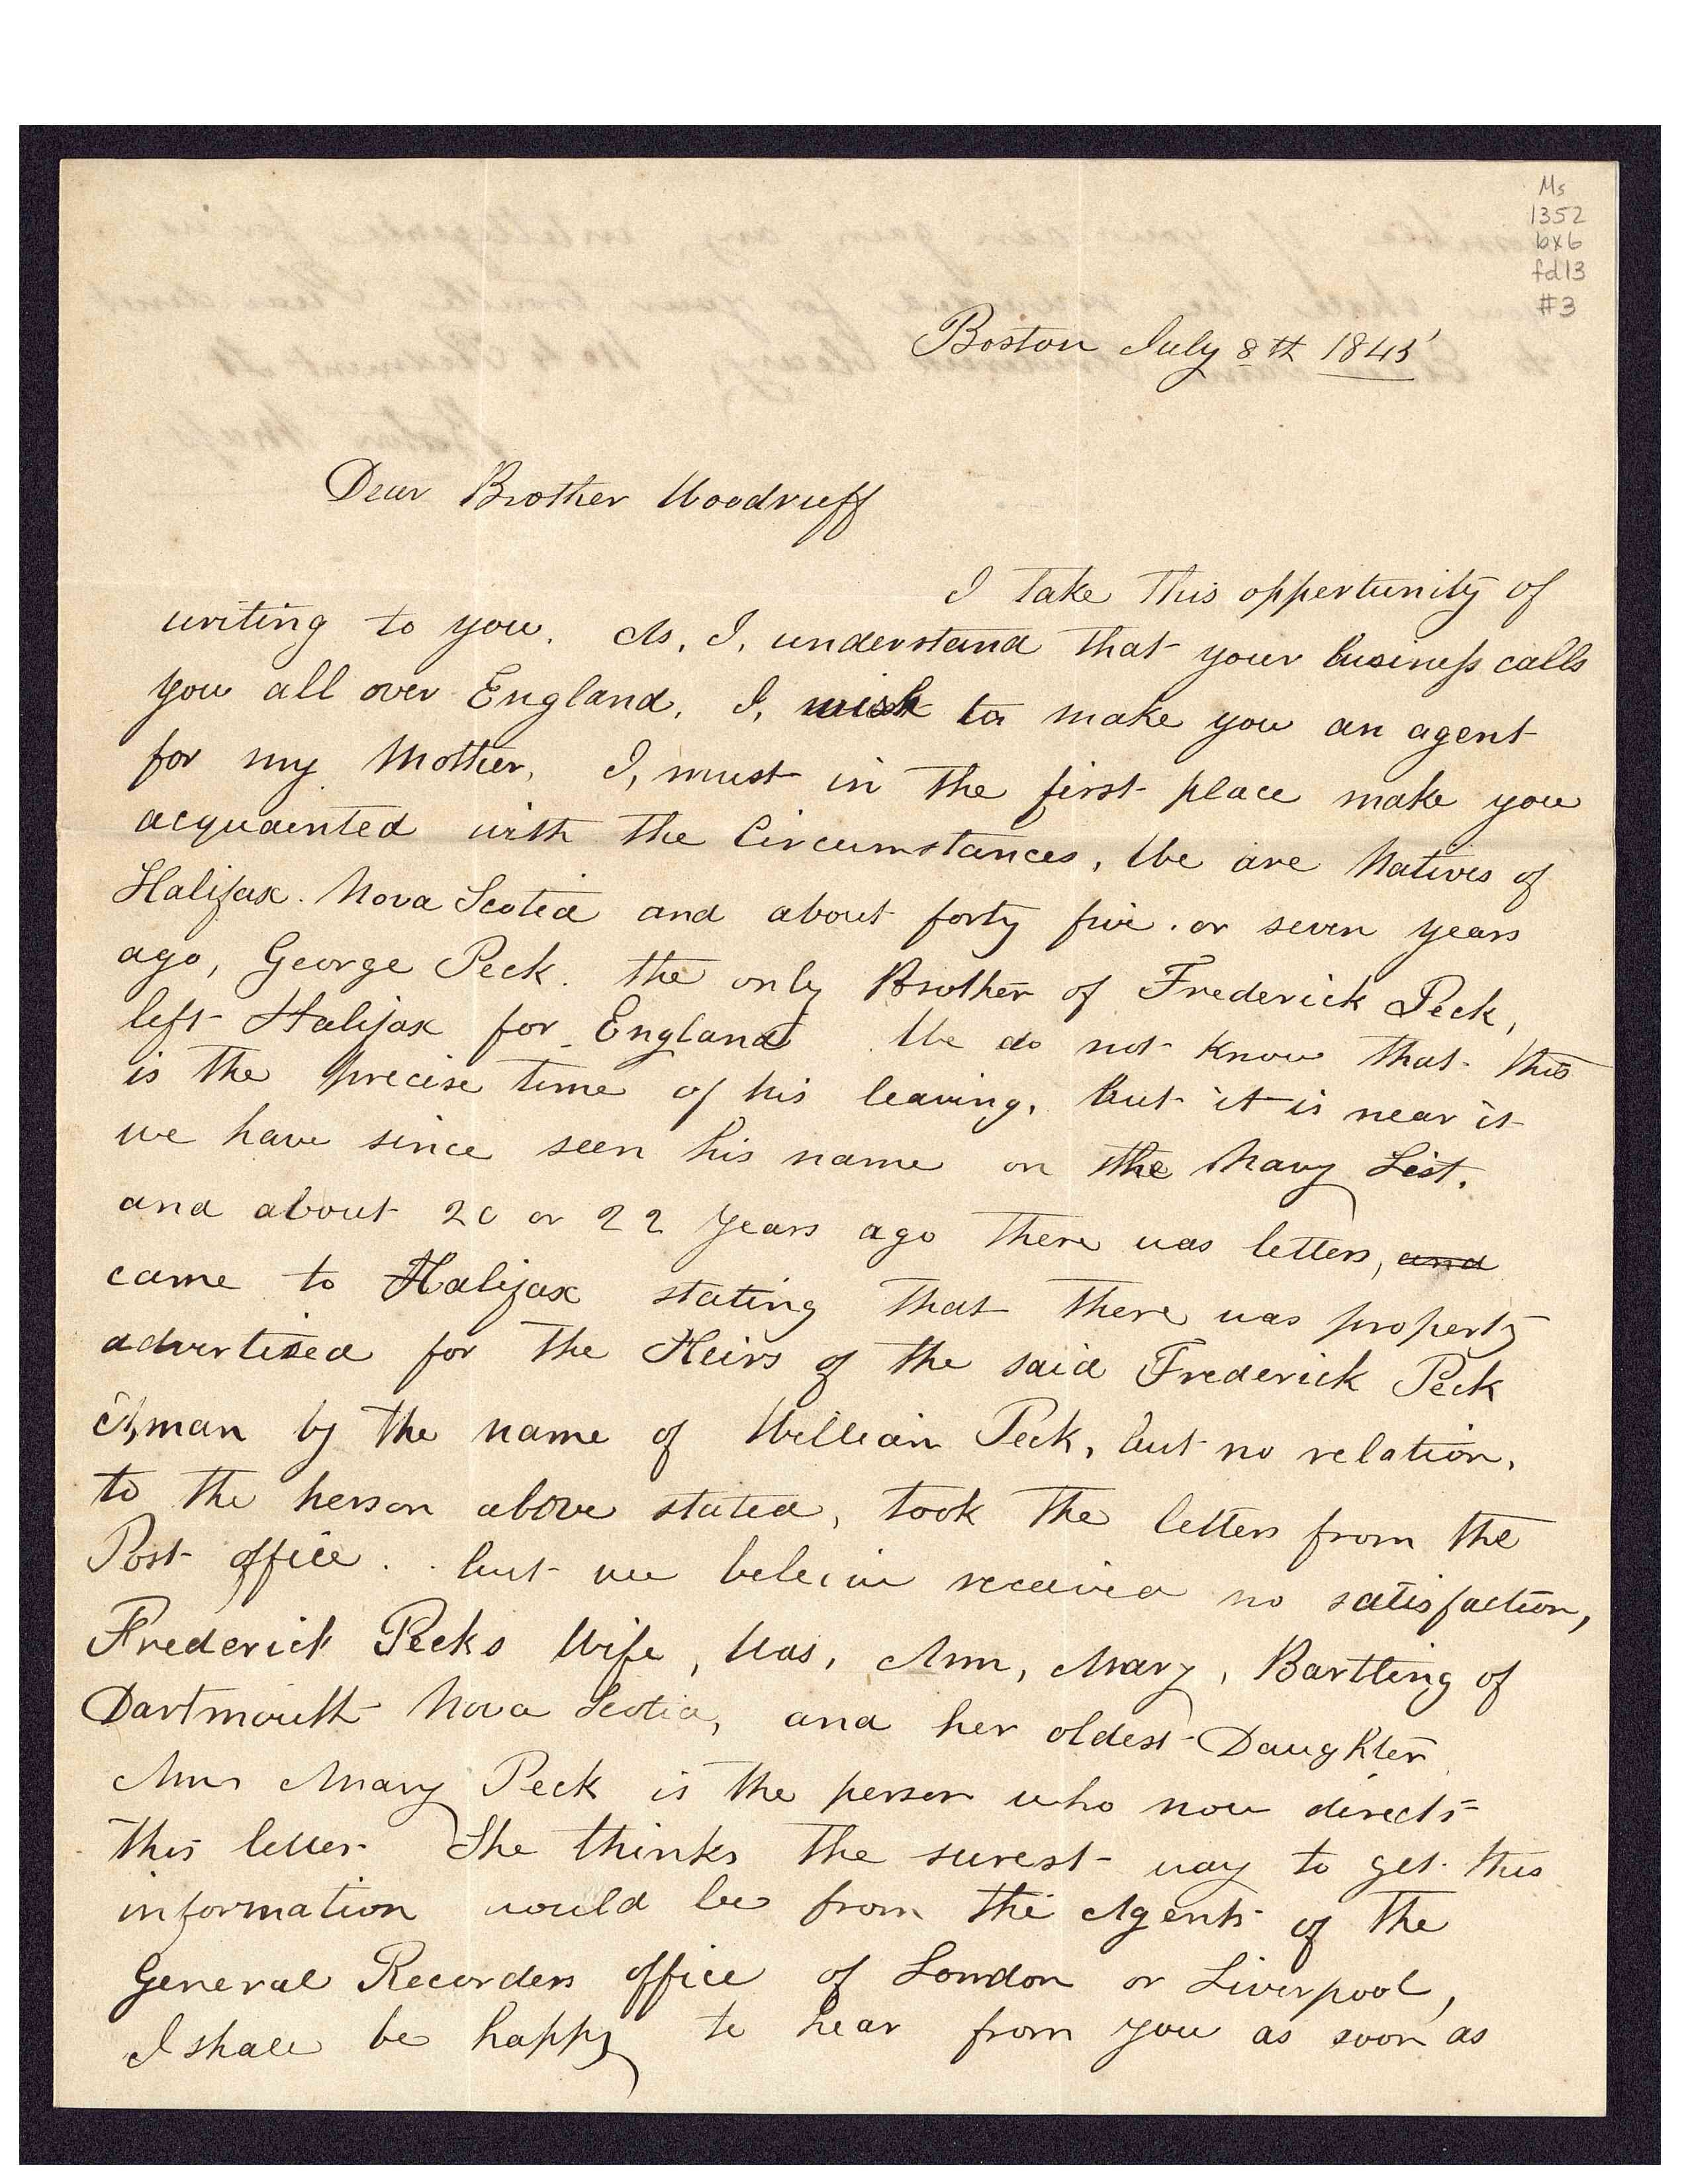 Ms
1352
bx6
fd13
#3
Boston July 8th 1845
Dear Brother Woodruff
I take this oppertunity of
writing to you. As, I, understand that your business calls
you all over England, I, wish to make you an agent
for my Mother, I, must in the first place make you
acquainted with the Circumstances, We are Natives of
Halifax. Nova Scotia and about forty five. or seven years
ago, George Peck. the only Brother of Frederick Peck,
left Halifax for England We do not know that this
is the precise time of his leaving, but it is near it
we have since seen his name on the Navy List.
and about 20 or 22 years ago there was letters, and
came to Halifax stating that there was property
advertised for the Heirs of the said Frederick Peck
A, man by the name of William Peck, but no relation,
to the person above stated, took the letters from the
Post office . . but we beleive received no satisfaction,
Frederick Pecks Wife, Was, Ann, Mary, Bartling of
Dartmouth Nova Scotia, and her oldest Daughter
Ann Mary Peck is the person who now directs
this letter She thinks the surest way to get this
information would be from the Agents of the
General Recorders office of London or Liverpool,
I shall be happy to hear from you as soon as